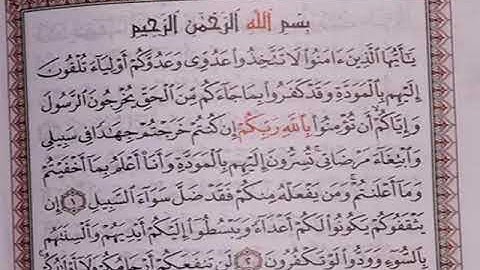 بِسْمِ اللَّهِ الرَّحْمَٰنِ الرَّحِيمِ
يَٰٓأَيُّهَا الَّذِينَ ءَامَنُوا۟ لَا تَتَّخِذُوا۟ عَدُوِّى وَعَدُوَّكُمْ أَوْلِيَآءَ تُلْقُونَ
إِلَيْهِم بِالْمَوَدَّةِ وَقَدْ كَفَرُوا۟ بِمَا جَآءَكُم مِّنَ الْحَقِّ يُخْرِجُونَ الرَّسُولَ
وَإِيَّاكُمْ أَن تُؤْمِنُوا۟ بِاللَّهِ رَبِّكُمْ إِن كُنتُمْ خَرَجْتُمْ جِهَٰدًا فِى سَبِيلِى
وَابْتِغَآءَ مَرْضَاتِى تُسِرُّونَ إِلَيْهِم بِالْمَوَدَّةِ وَأَنَا۠ أَعْلَمُ بِمَآ أَخْفَيْتُمْ
وَمَآ أَعْلَنتُمْ وَمَن يَفْعَلْهُ مِنكُمْ فَقَدْ ضَلَّ سَوَآءَ السَّبِيلِ ١ إِن
يَثْقَفُوكُمْ يَكُونُوا۟ لَكُمْ أَعْدَآءً وَيَبْسُطُوٓا۟ إِلَيْكُمْ أَيْدِيَهُمْ وَأَلْسِنَتَهُم
بِالسُّوٓءِ وَوَدُّوا۟ لَوْ تَكْفُرُونَ ٢ لَن تَنفَعَكُمْ أَرْحَامُكُمْ وَلَآ أَوْلَٰدُكُمْ